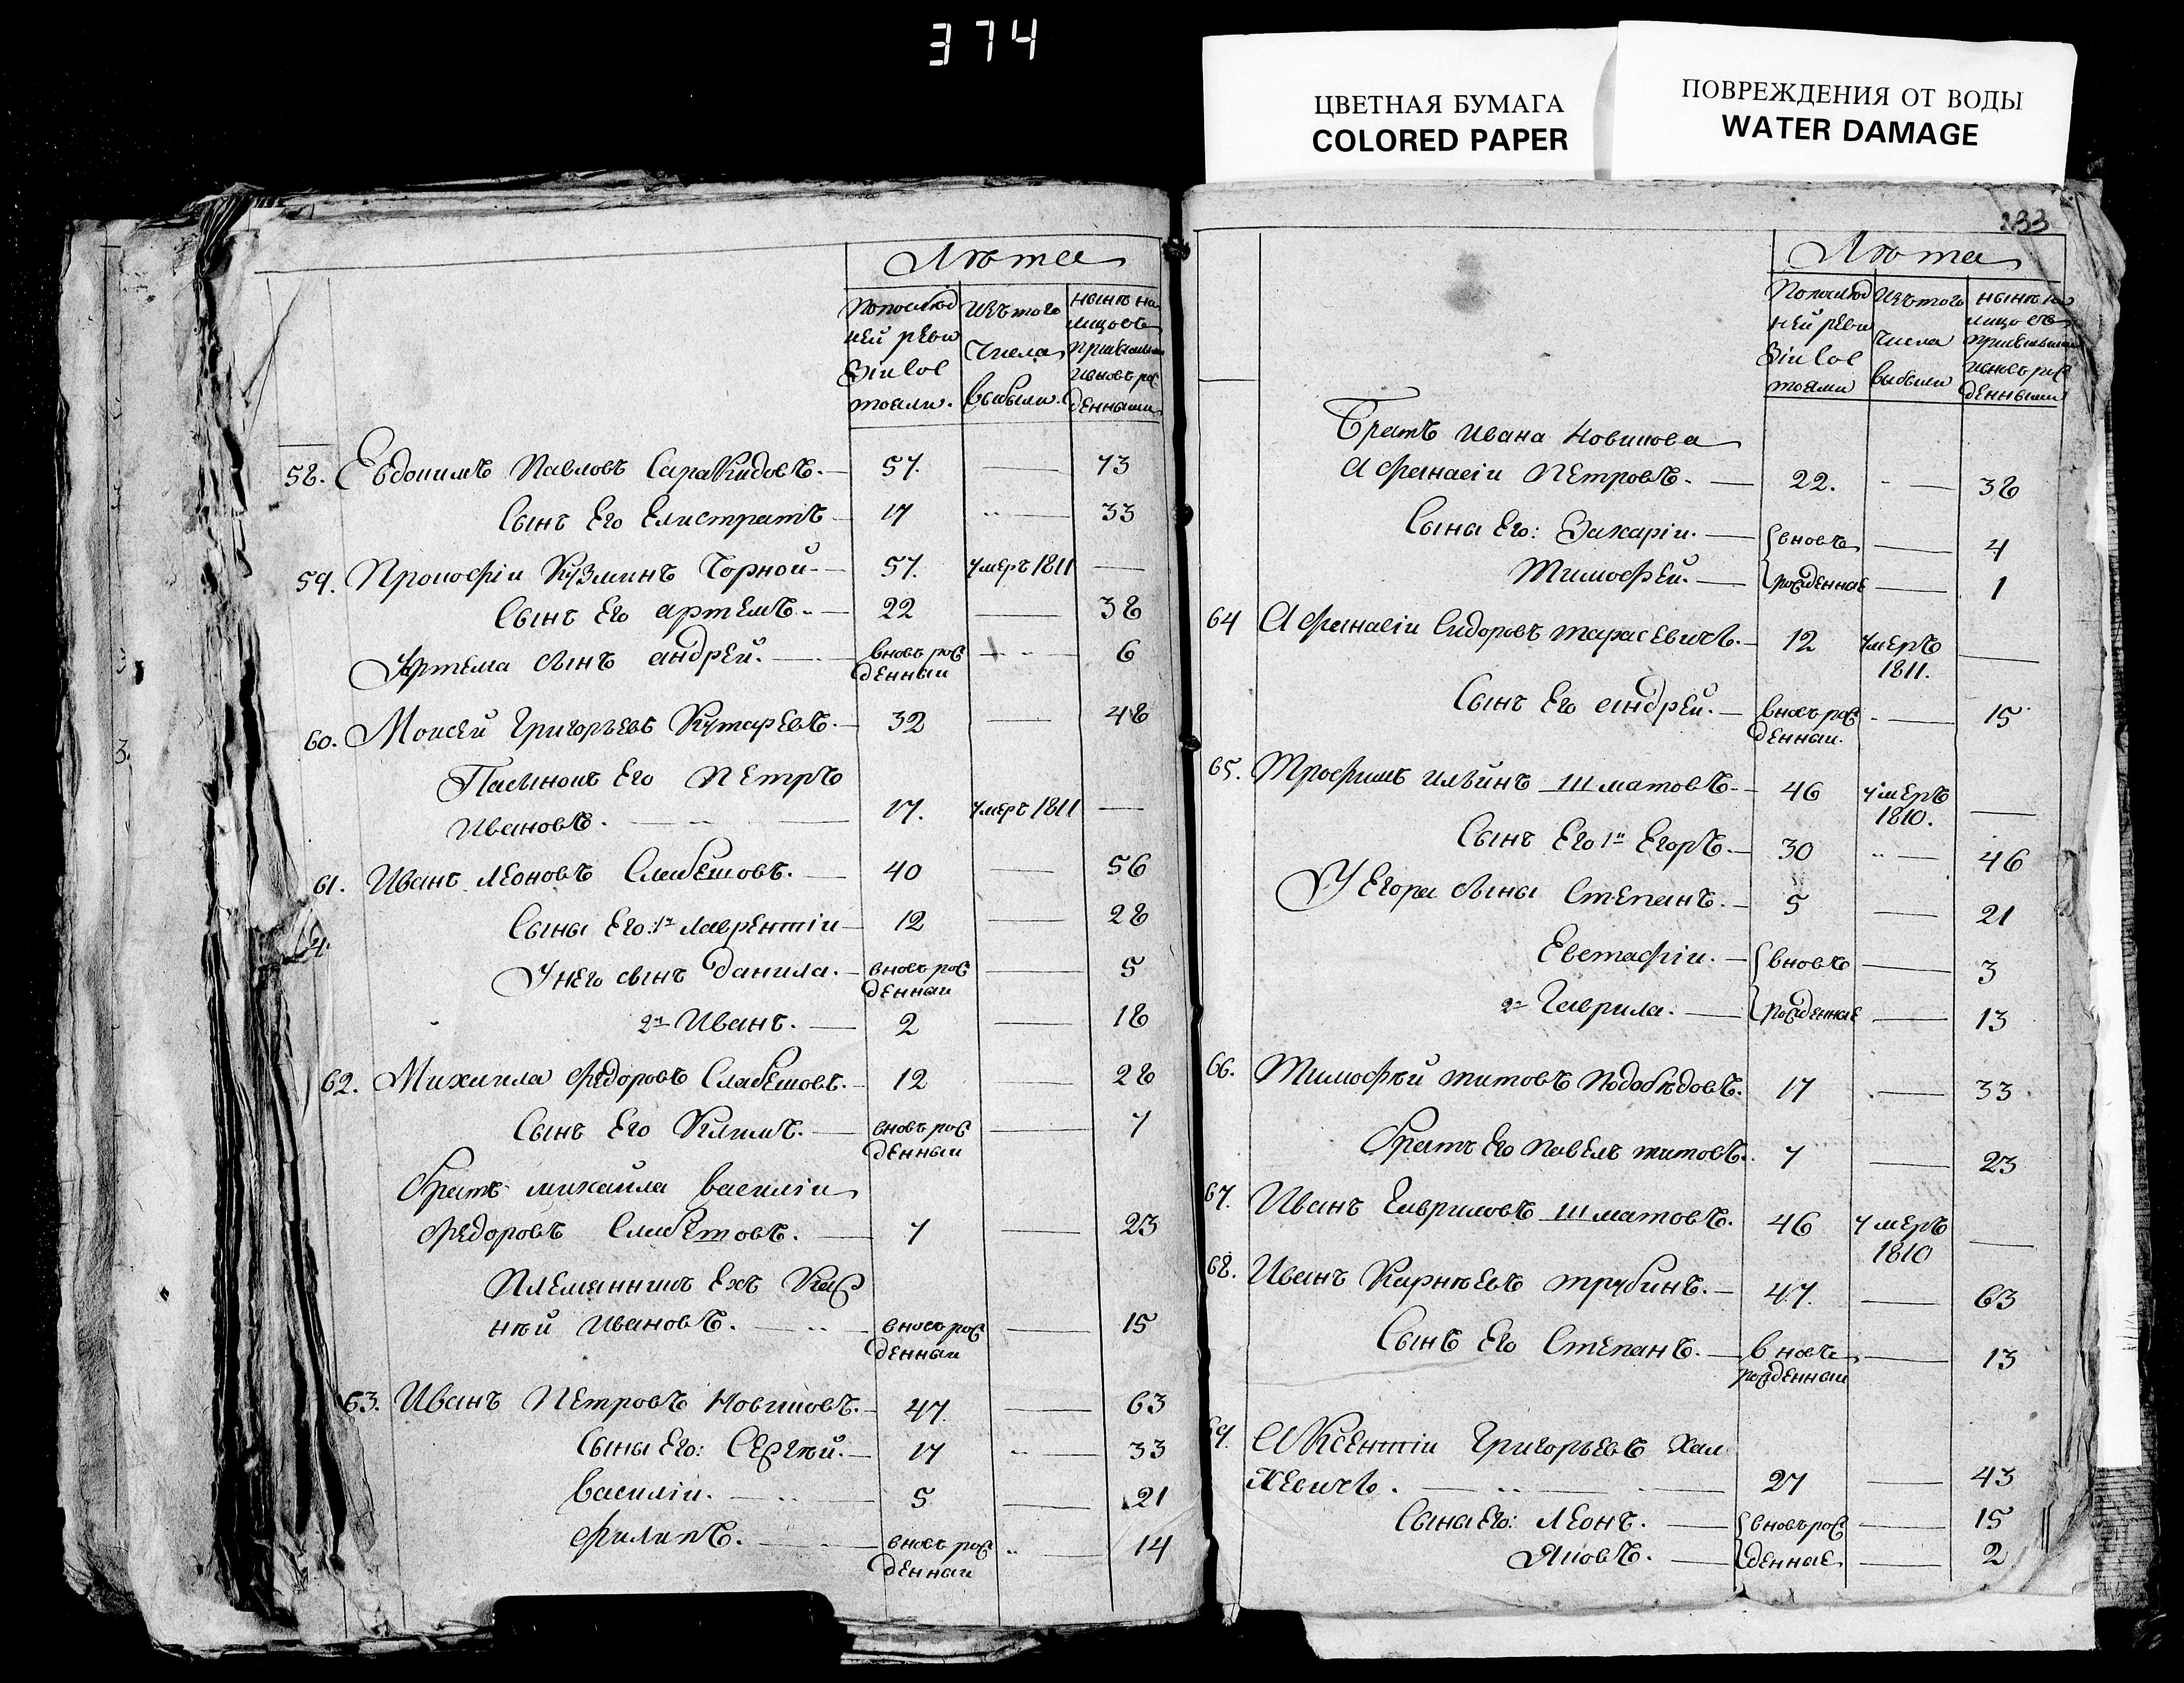 374
ЦВЕТНАЯ БУМАГА
COLORED PAPER
ПОВРЕЖДЕНИЯ ОТ ВОДЫ
WATER DAMAGE
Лѣта
Попослѣд ней ревизіи состояли.
Изъ того числа выбыли.
нынѣ на лицо съ прибылыми и вновь рожденными
58. Евдокимъ Павловъ 57. — 73
Сынъ Его Елистратъ 17 — 33
59. Прокофіи Кузминъ Чорной 57. умеръ 1811 —
Сынъ Его артемъ. 22 — 38
Артема сынъ андрей. вновь рожденныи — 6
60. Моисей Григорьевъ Кутаревъ. 32 — 48
Пасынокъ Его Петръ
Ивановъ. 17. умеръ 1811 —
61. Иванъ Леоновъ Слабешовъ. 40 — 56
Сыны Его: 1й лаврентіи 12 — 28
У него сынъ данила. вновь рожденныи — 5
2й Иванъ. 2 — 18
62. Михаила федоровъ Слабешовъ. 12 — 28
Сынъ Его Климъ. вновь рожденныи — 7
братъ михаила василіи
федоровъ Слабешовъ. 7 — 23
Племянникъ Ехъ Кар
нѣй Ивановъ. вновь рожденныи — 15
63. Иванъ Петровъ Новиковъ. 47. — 63
Сыны Его: Сергѣй. 17 — 33
василіи. 5 — 21
филипъ. вновь рожденныи — 14
233
Лѣта
Попослѣд ней ревизіи состояли
Изъ того числа выбыли
нынѣ на лицо съ прибылыми и вновь рожденными
Братъ ивана новикова
Афанасіи Петровъ. 22. — 38
Сыны Его: Захаріи. вновь — 4
Тимофей. рожденные — 1
64 Афанасіи Сидоровъ тарасевичъ. 12 умеръ 1811. —
Сынъ Его андрей. вновь рожденныи. — 15
65. Трофимъ ильинъ Шматовъ. 46 умеръ 1810. —
Сынъ Его 1й Егоръ. 30 — 46
У Егора сыны Степанъ. 5 — 21
Евстафіи. вновь — 3
2й Гаврила. рожденные — 13
66. Тимофѣй титовъ Подобѣдовъ. 17 — 33
братъ Его Павелъ титовъ. 7 — 23
67. Иванъ Гавриловъ Шматовъ. 46 умеръ 1810 —
68. Иванъ Карнѣевъ трубинъ. 47. — 63
Сынъ Его Степанъ. вновь рожденныи — 13
69. Аксентіи Григорьевъ Хац
кевичъ. 27 — 43
Сыны Его: Леонъ. вновь рож — 15
Яковъ. денные — 2